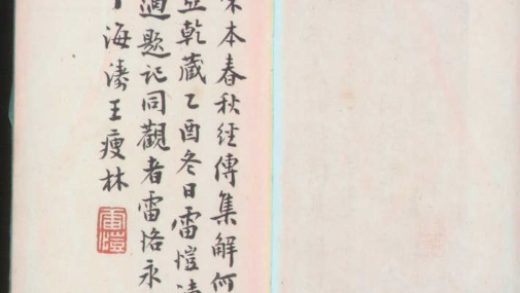 本春秋經傳集解何
乾藏乙酉冬日雷愷
適題記同觀者雷恪永
海濤王瘦林
雷愷